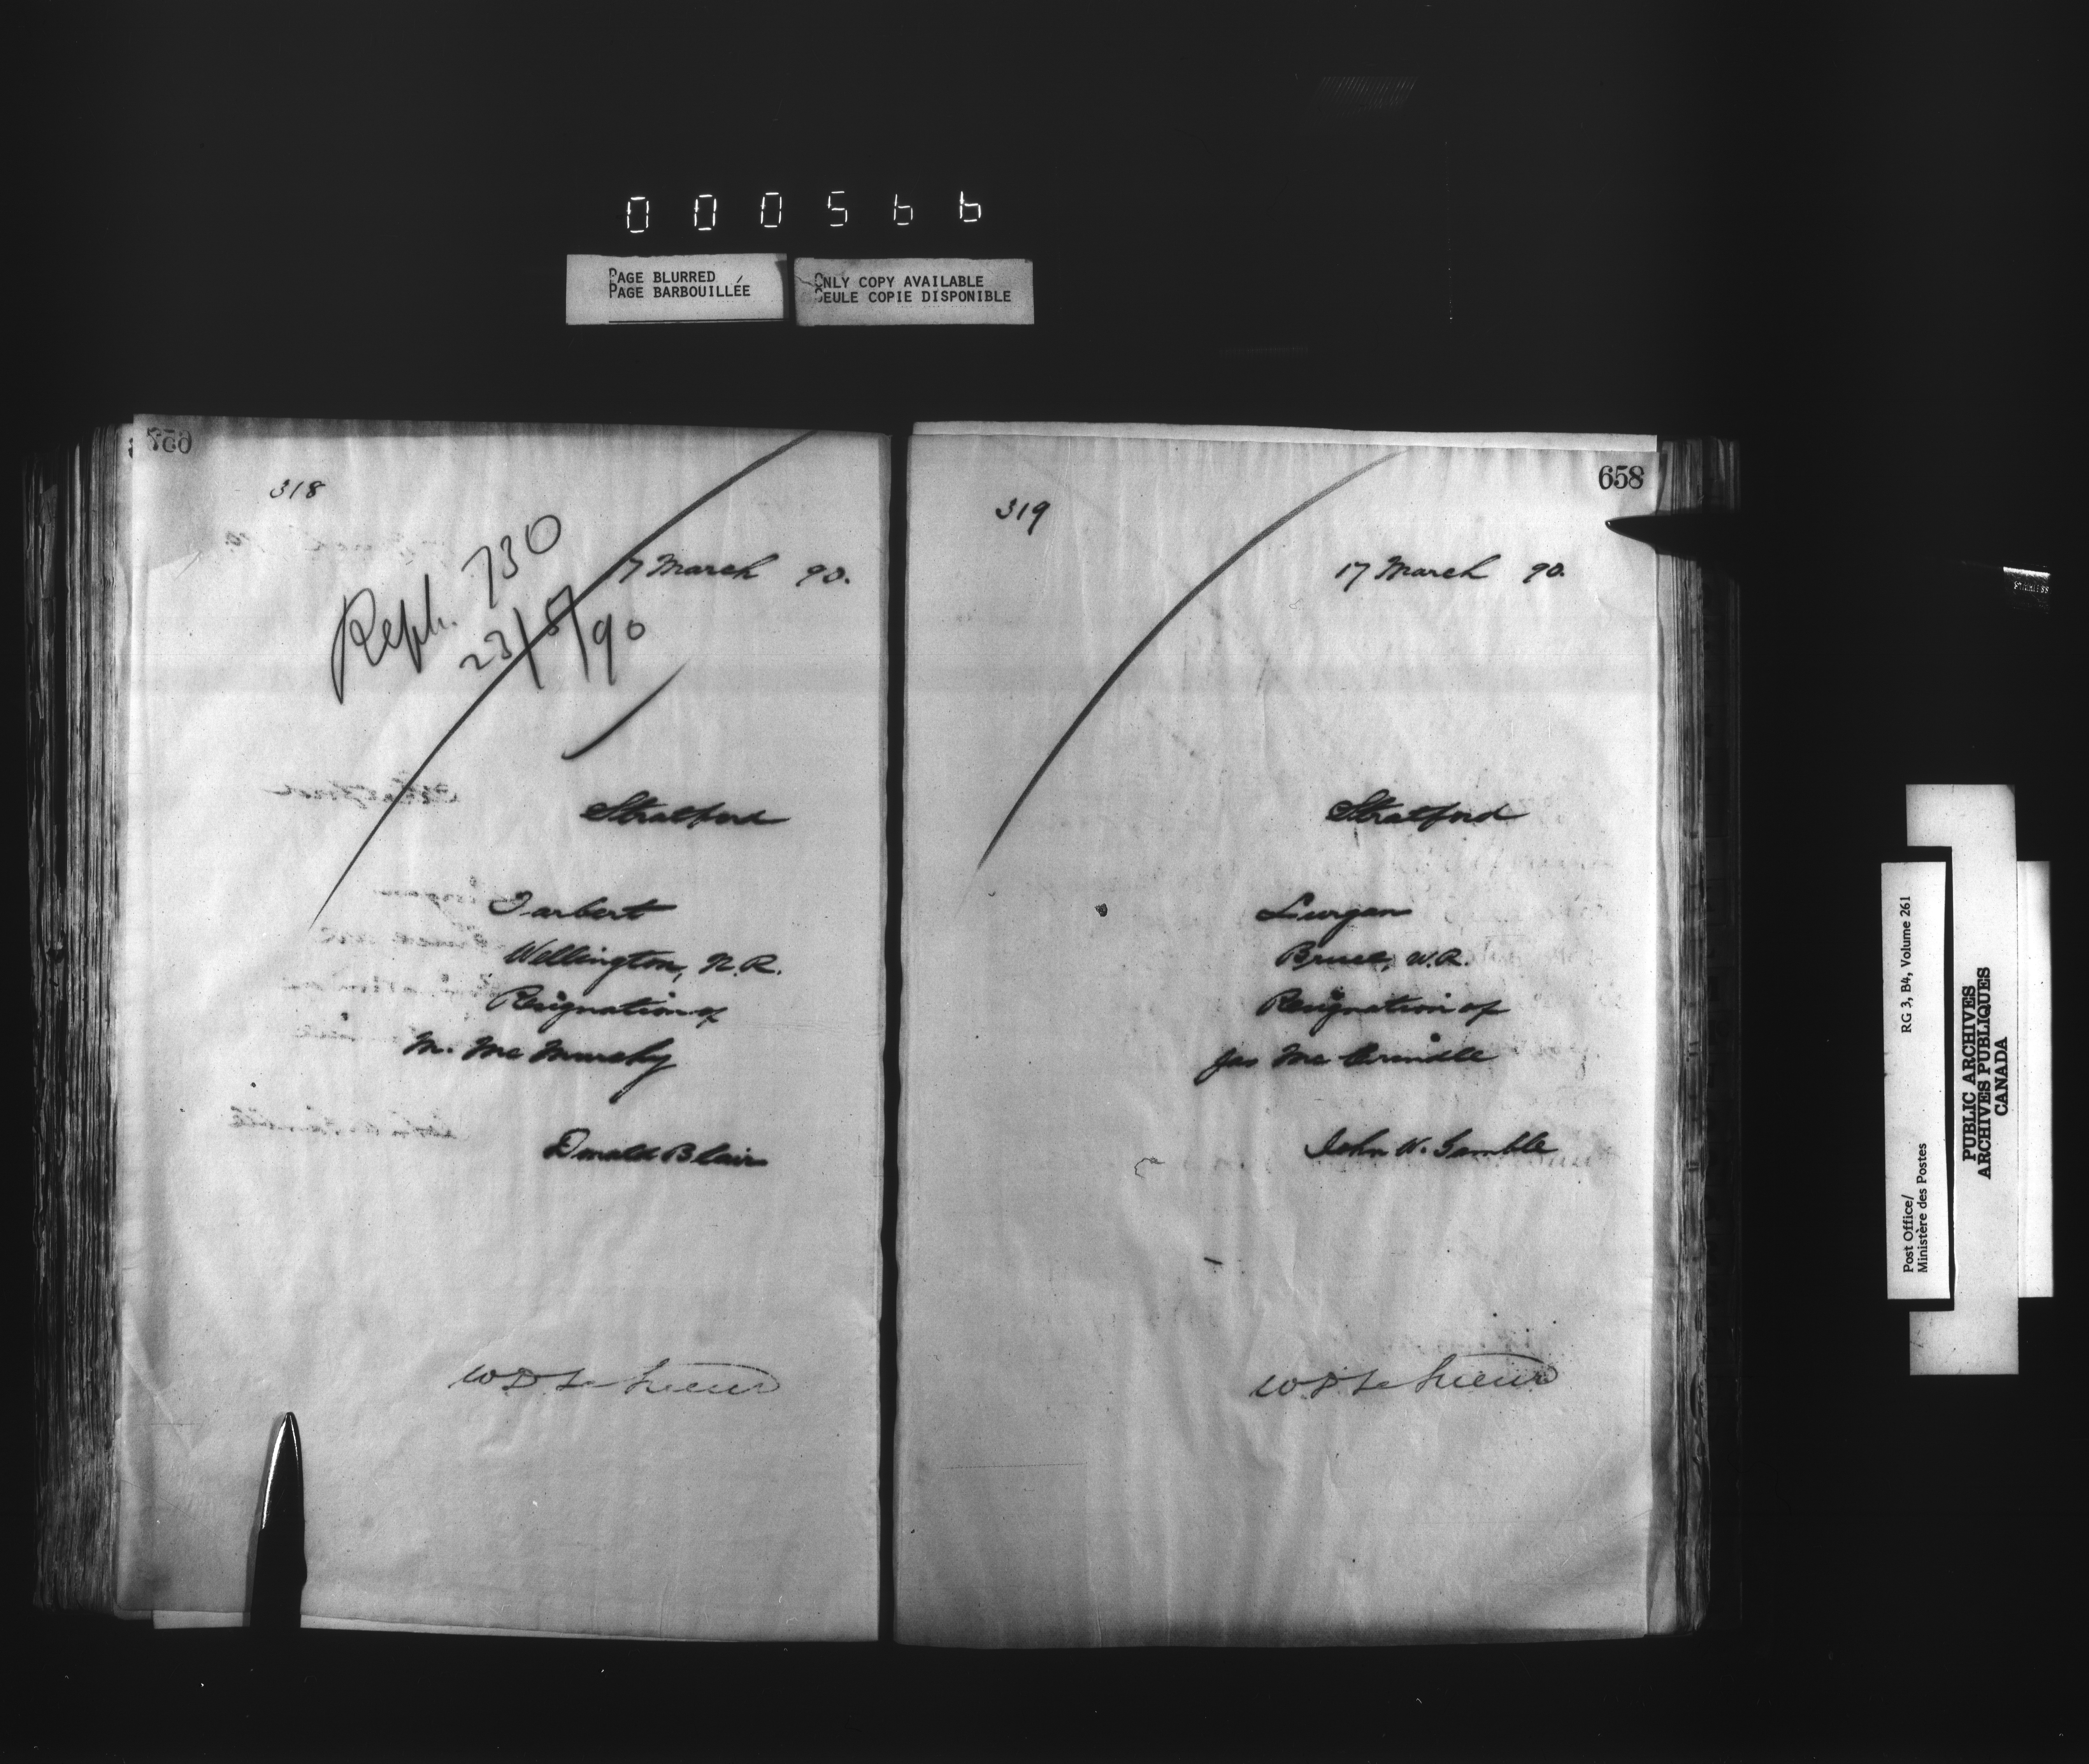 000566
PAGE BLURRED
PAGE BARBOUILLÉE
ONLY COPY AVAILABLE
SEULE COPIE DISPONIBLE
318
17 March 90.
Reph. 730
23/5/90
Stratford
Tarbert
Wellington, N.R.
Resignation of
M. McMurchy
Donald Blair
658
319
17 March 90.
Stratford
Lurgan
Bruce, W.R.
Resignation of
Jas McCrindle
John W. Gamble
Post Office/
Ministère des Postes
RG 3, B4, Volume 261
PUBLIC ARCHIVES
ARCHIVES PUBLIQUES
CANADA